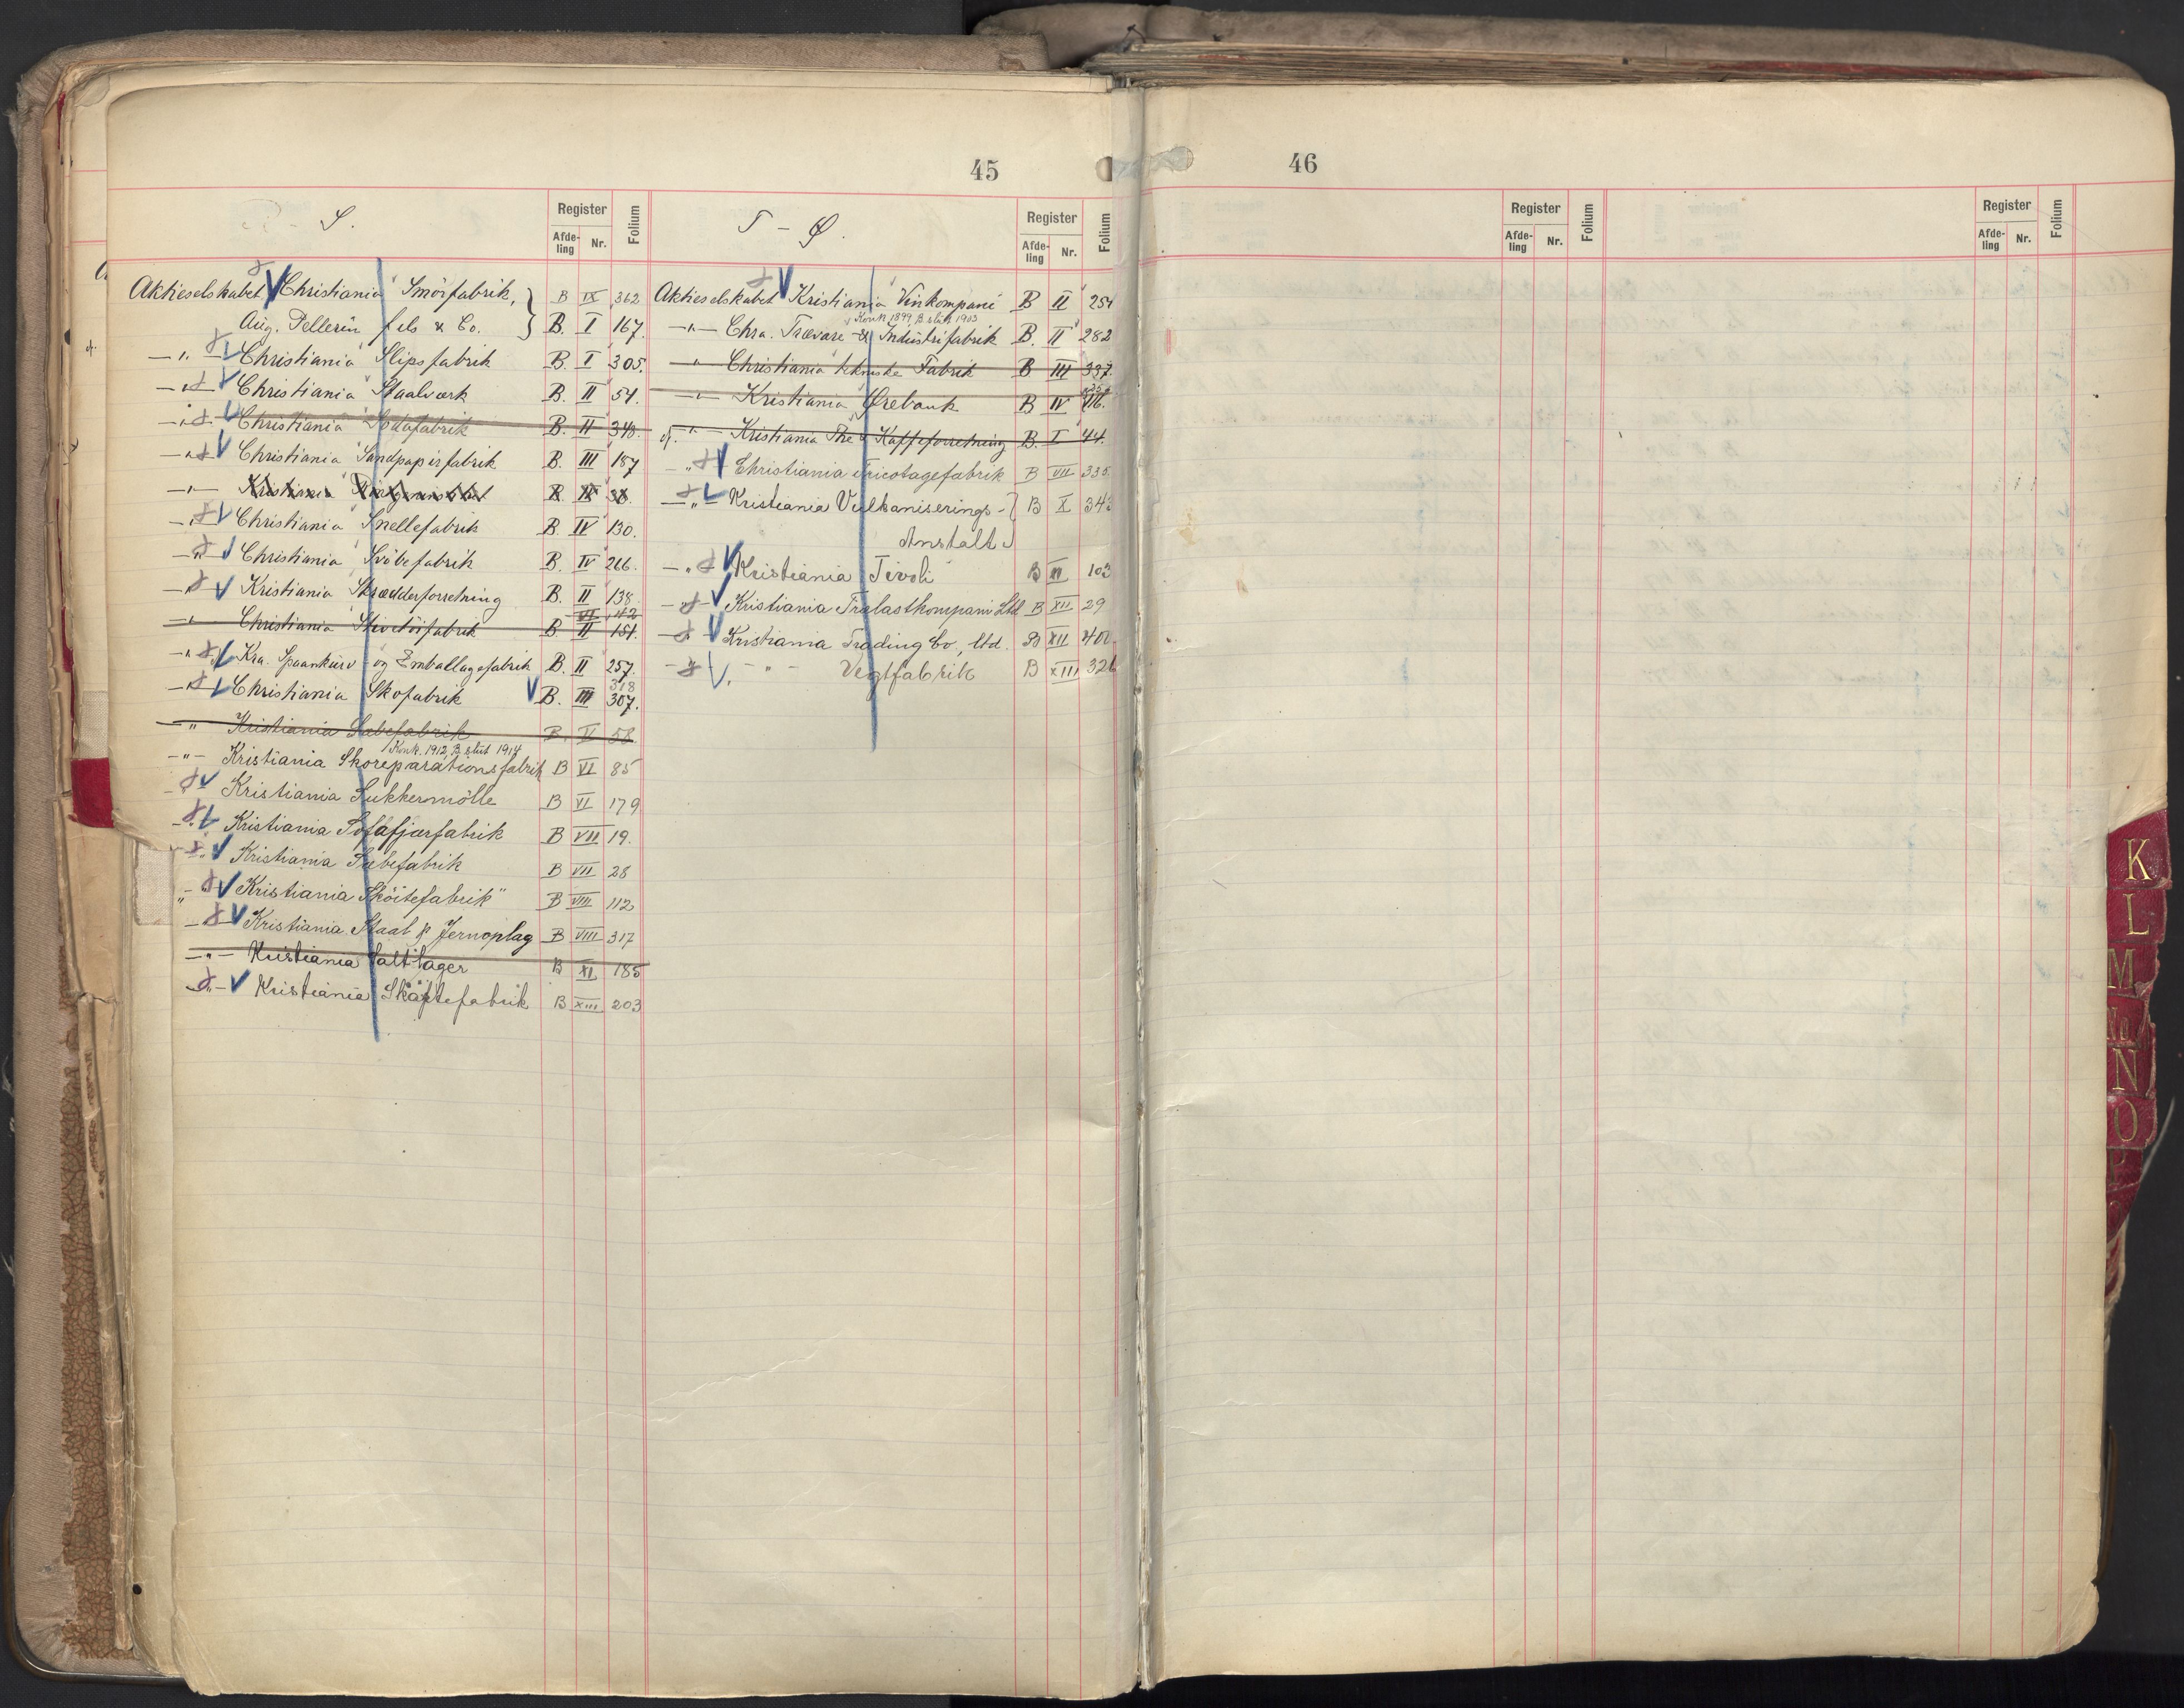 45
S.
Register
Afde-
ling
Nr.
Folium
Aktieselskabet "Christiania Smörfabrik, B IX 362
Aug. Pellerin fils & Co. B. I 167.
—"— Christiania Slipsfabrik B. I 305.
—"— Christiania Staalværk B. II 54.
—"— Christiania Sodafabrik B. II 348.
—"— Christiania Sandpapirfabrik B. III 187
—"— Kristiania
—"— Christiania Snellefabrik B. IV 130.
—"— Christiania Svöbefabrik B. IV 266.
—"— Kristiania Skrædderforretning B. II 138.
VI 142
—"— Christiania Stivetöifabrik B II 151.
—"— Kra. Spaankurv- og Emballagefabrik B. II 257.
318
—"— Christiania Skofabrik B. III 307.
—"— Kristiania Sæbefabrik B. V 58.
Konk. 1912, B. slut 1914
—"— Kristiania Skoreparationsfabrik B VI 85
Kristiania Sukkermölle B VI 179
—"— Kristiania Sofafjærfabrik B VII 19.
—"— Kristiania Sæbefabrik B VII 28
—"— Kristiania Sköitefabrik" B VIII 112
—"— Kristiania Staal & Jernoplag B VIII 317
—"— Kristiania Saltlager B XI 185
—"— Kristiania Skaftefabrik B XIII 203
T – Ø.
Register
Afde-
ling
Nr.
Folium
Aktieselskabet "Kristiania Vinkompani B II 254
Konk 1899, B slut 1903
—"— Chra. Trævare- & Industrifabrik B. II 282
—"— Christiania tekniske Fabrik B III 337.
—"— Kristiania Ørebank B IV 116.
cf. —"— Kristiania The & Kaffeforretning B. I 44.
—"— Christiania Tricotagefabrik B VII 335.
—"— Kristiania Vulkaniserings- B X 343
Anstalt
—"— Kristiania Tivoli B 103
—"— Kristiania Trælastkompani Ltd B XII 29
—"— Kristiania Trading Co, ltd. B XII 400
—"— —"— Vegtfabrik B XIII 326
46
Register
Afde-
ling
Nr.
Folium
Register
Afde-
ling
Nr.
Folium
K
L
M
N
O